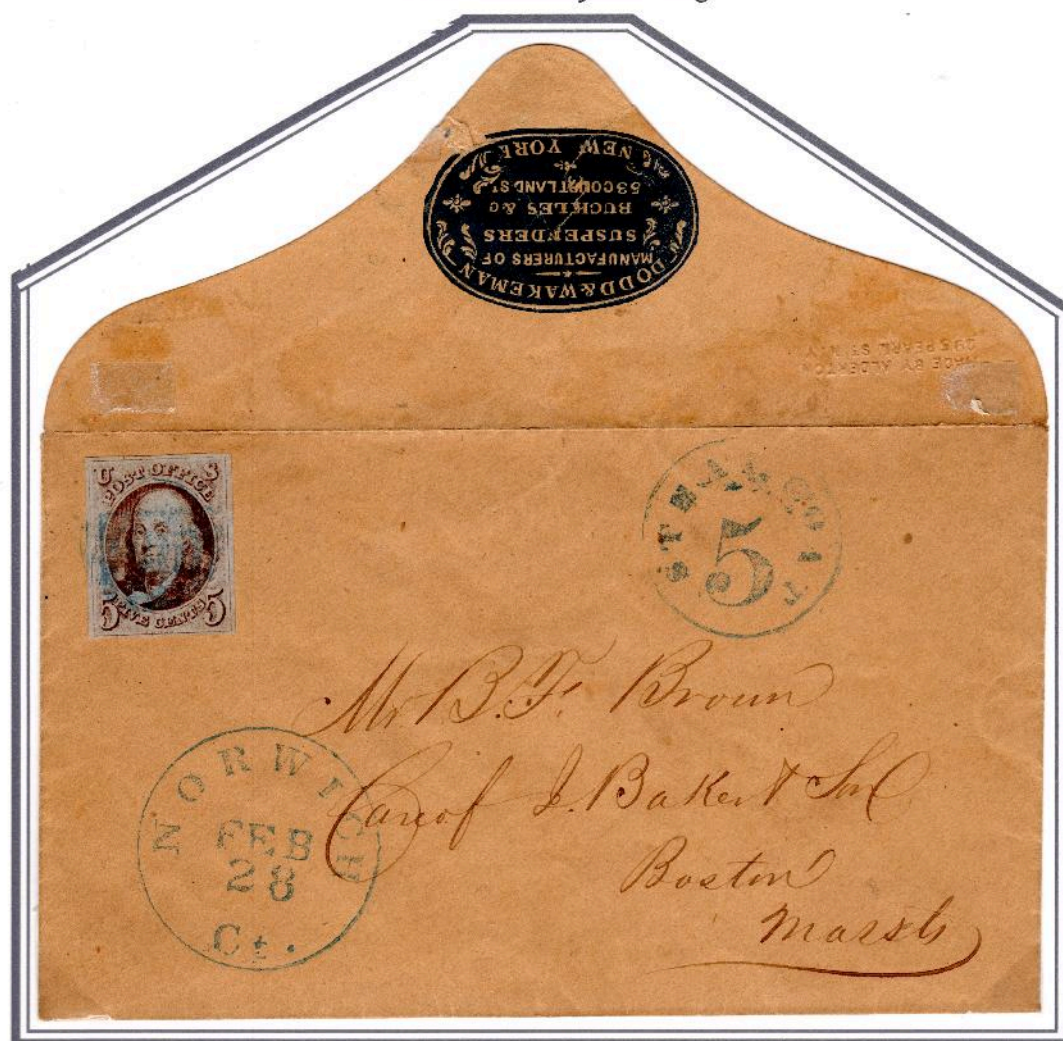 DODD & WAKEMAN
MANUFACTURERS OF
SUSPENDERS
BUCKLES &c
53 COURTLAND ST
NEW YORK
MADE BY ALDERTON
295 PEARL ST N.Y
U S
POST OFFICE
5 FIVE CENTS 5
STEAMBOAT
5
Mr B. F. Brown
Care of J. Baker & Son
Boston
Masss
NORWICH
FEB
28
Ct.